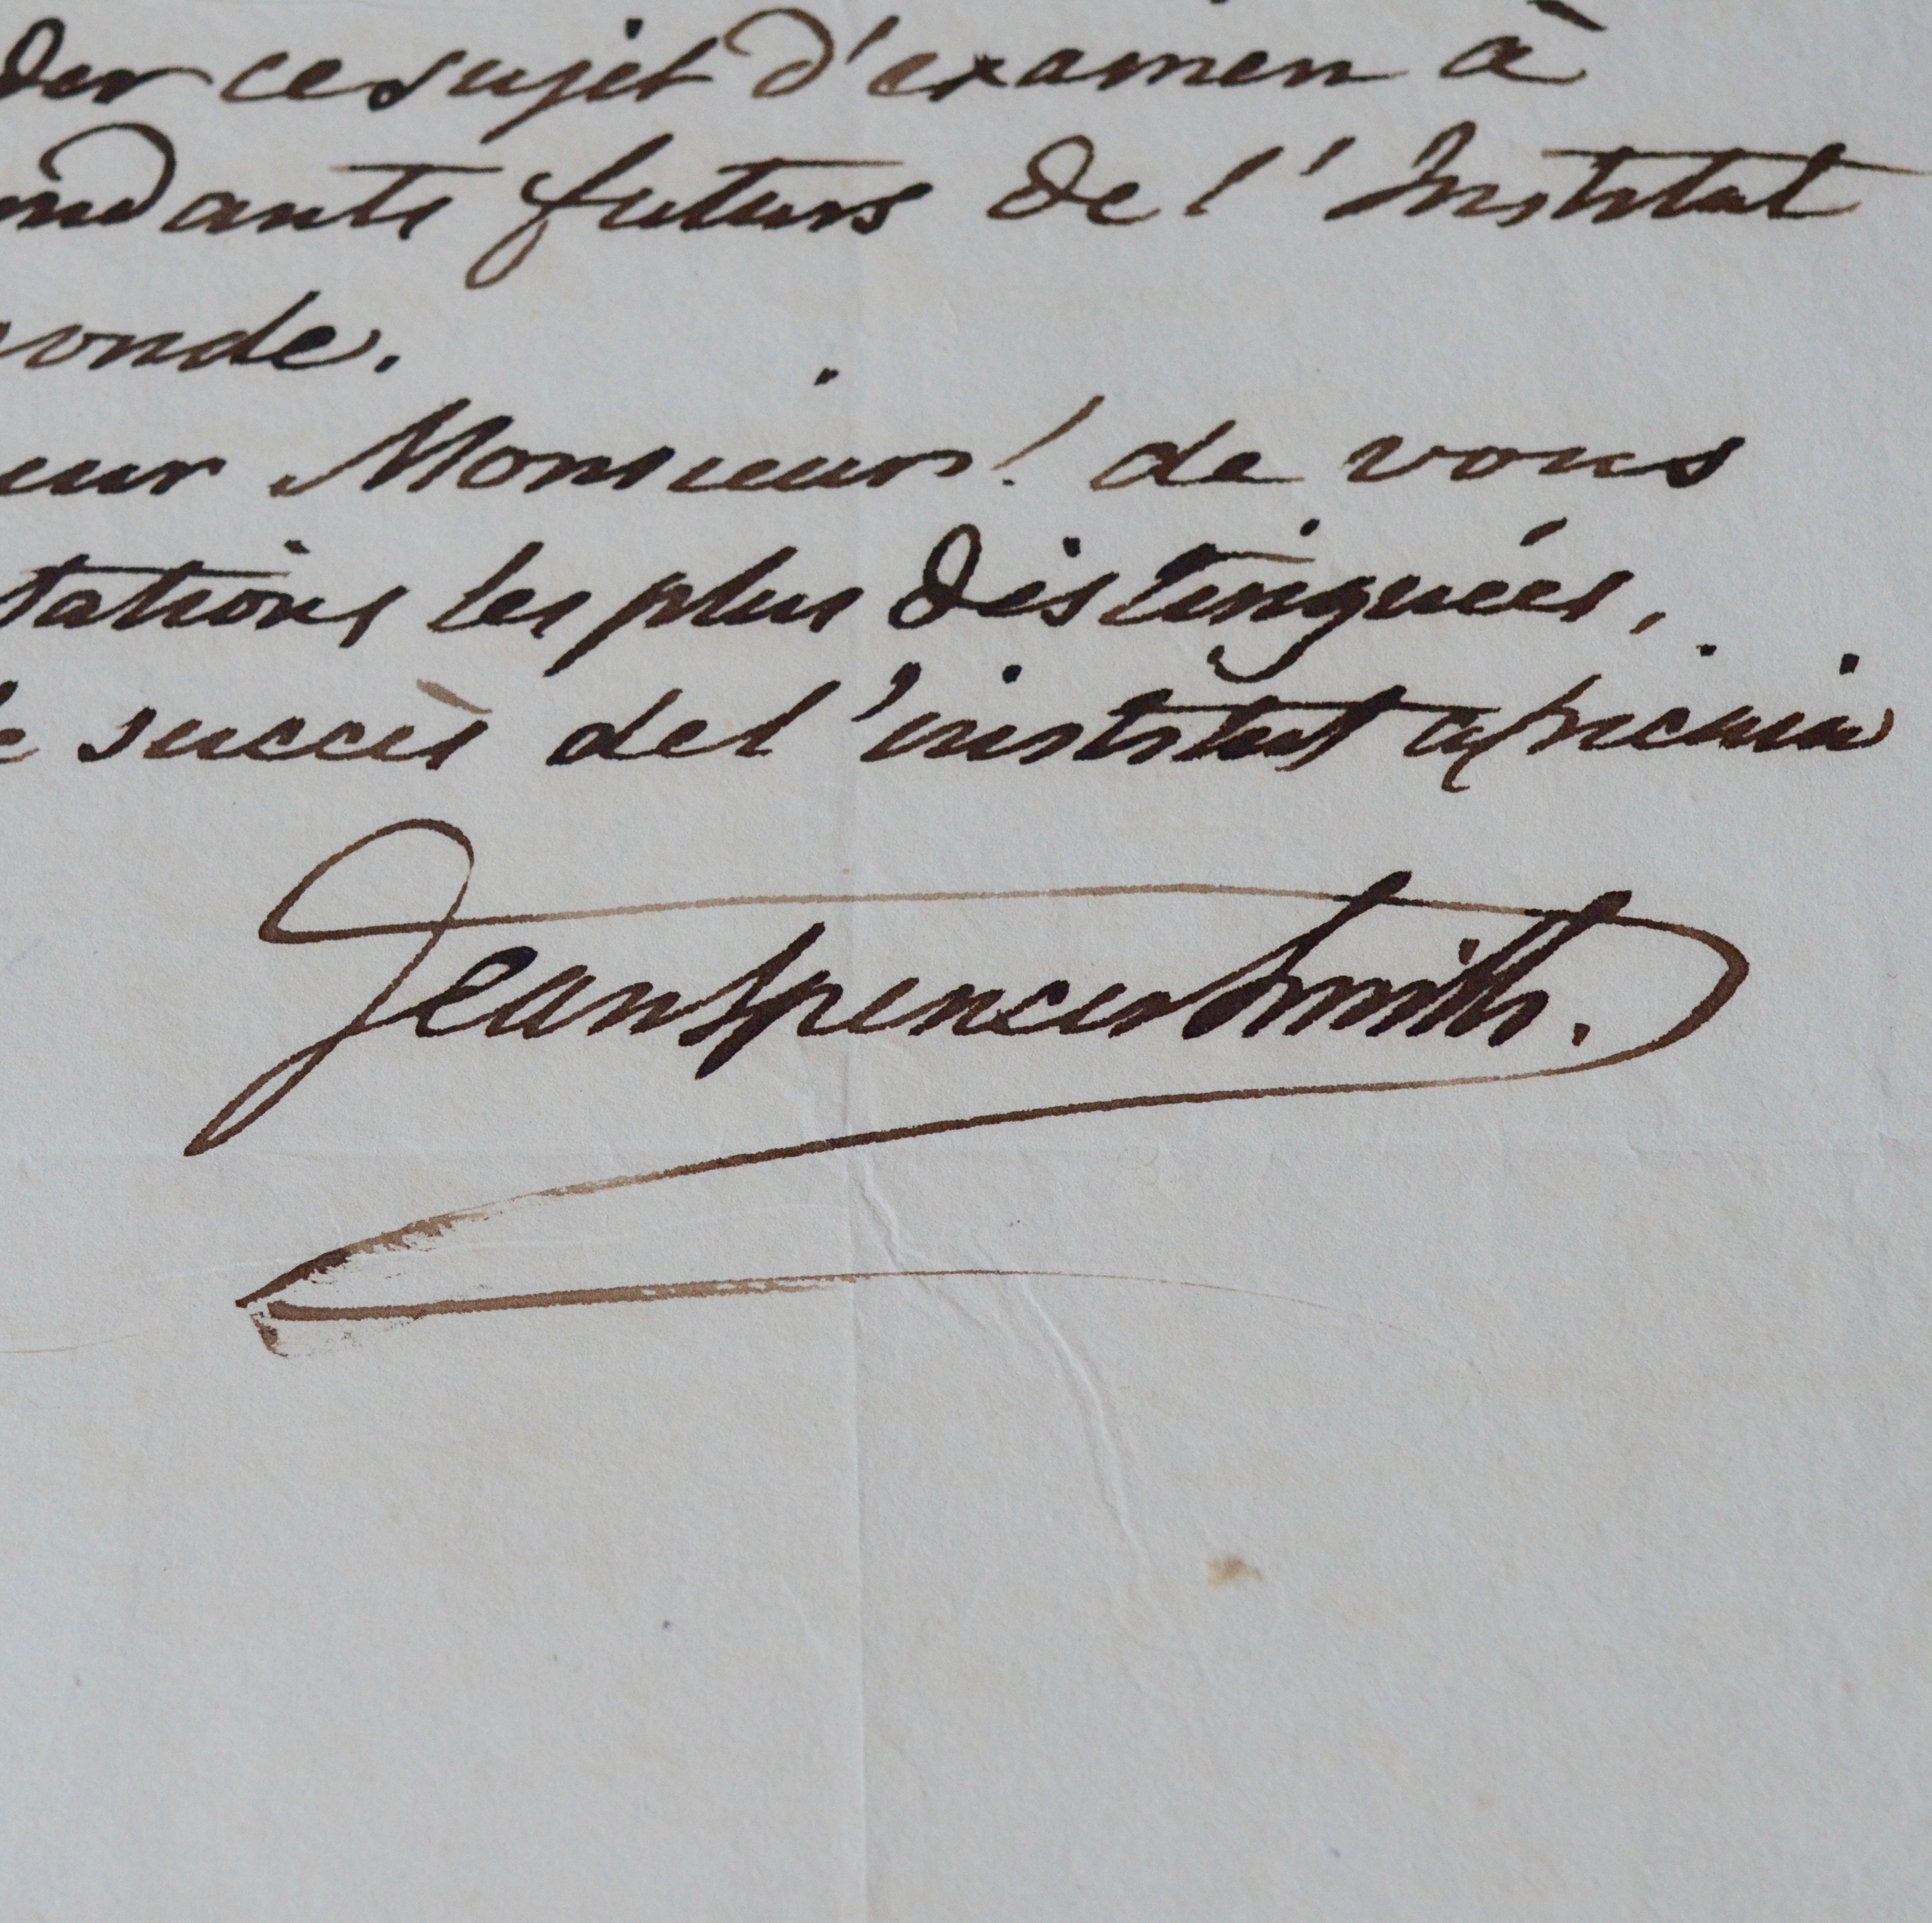 der ce sujet d'examen à
ondants futurs de l'Institut
onde.
eur Monsieur! de vous
tations les plus distinguées,
le succès de l'institut africain
Jean Spencer Smith.